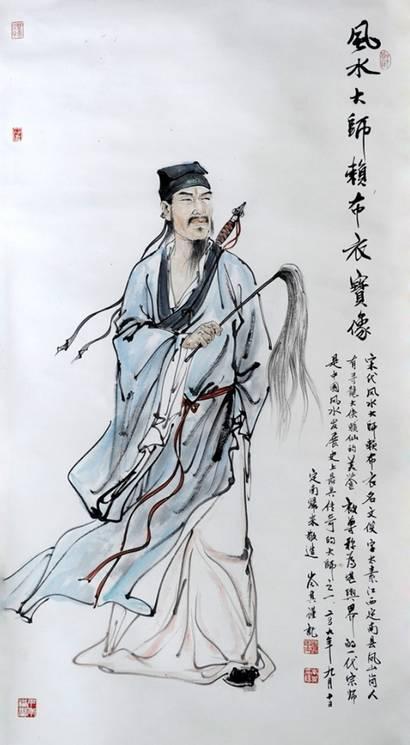 風水大師賴布衣寶像
宋代风水大师赖布衣名文俊 字太素 江西定南县凤山岗人
有寻龍大侠赖仙的美 被尊称为堪舆界 的一代宗师
是中國风水发展史上最具传奇的大师之一 年九月十日
定南 敬造